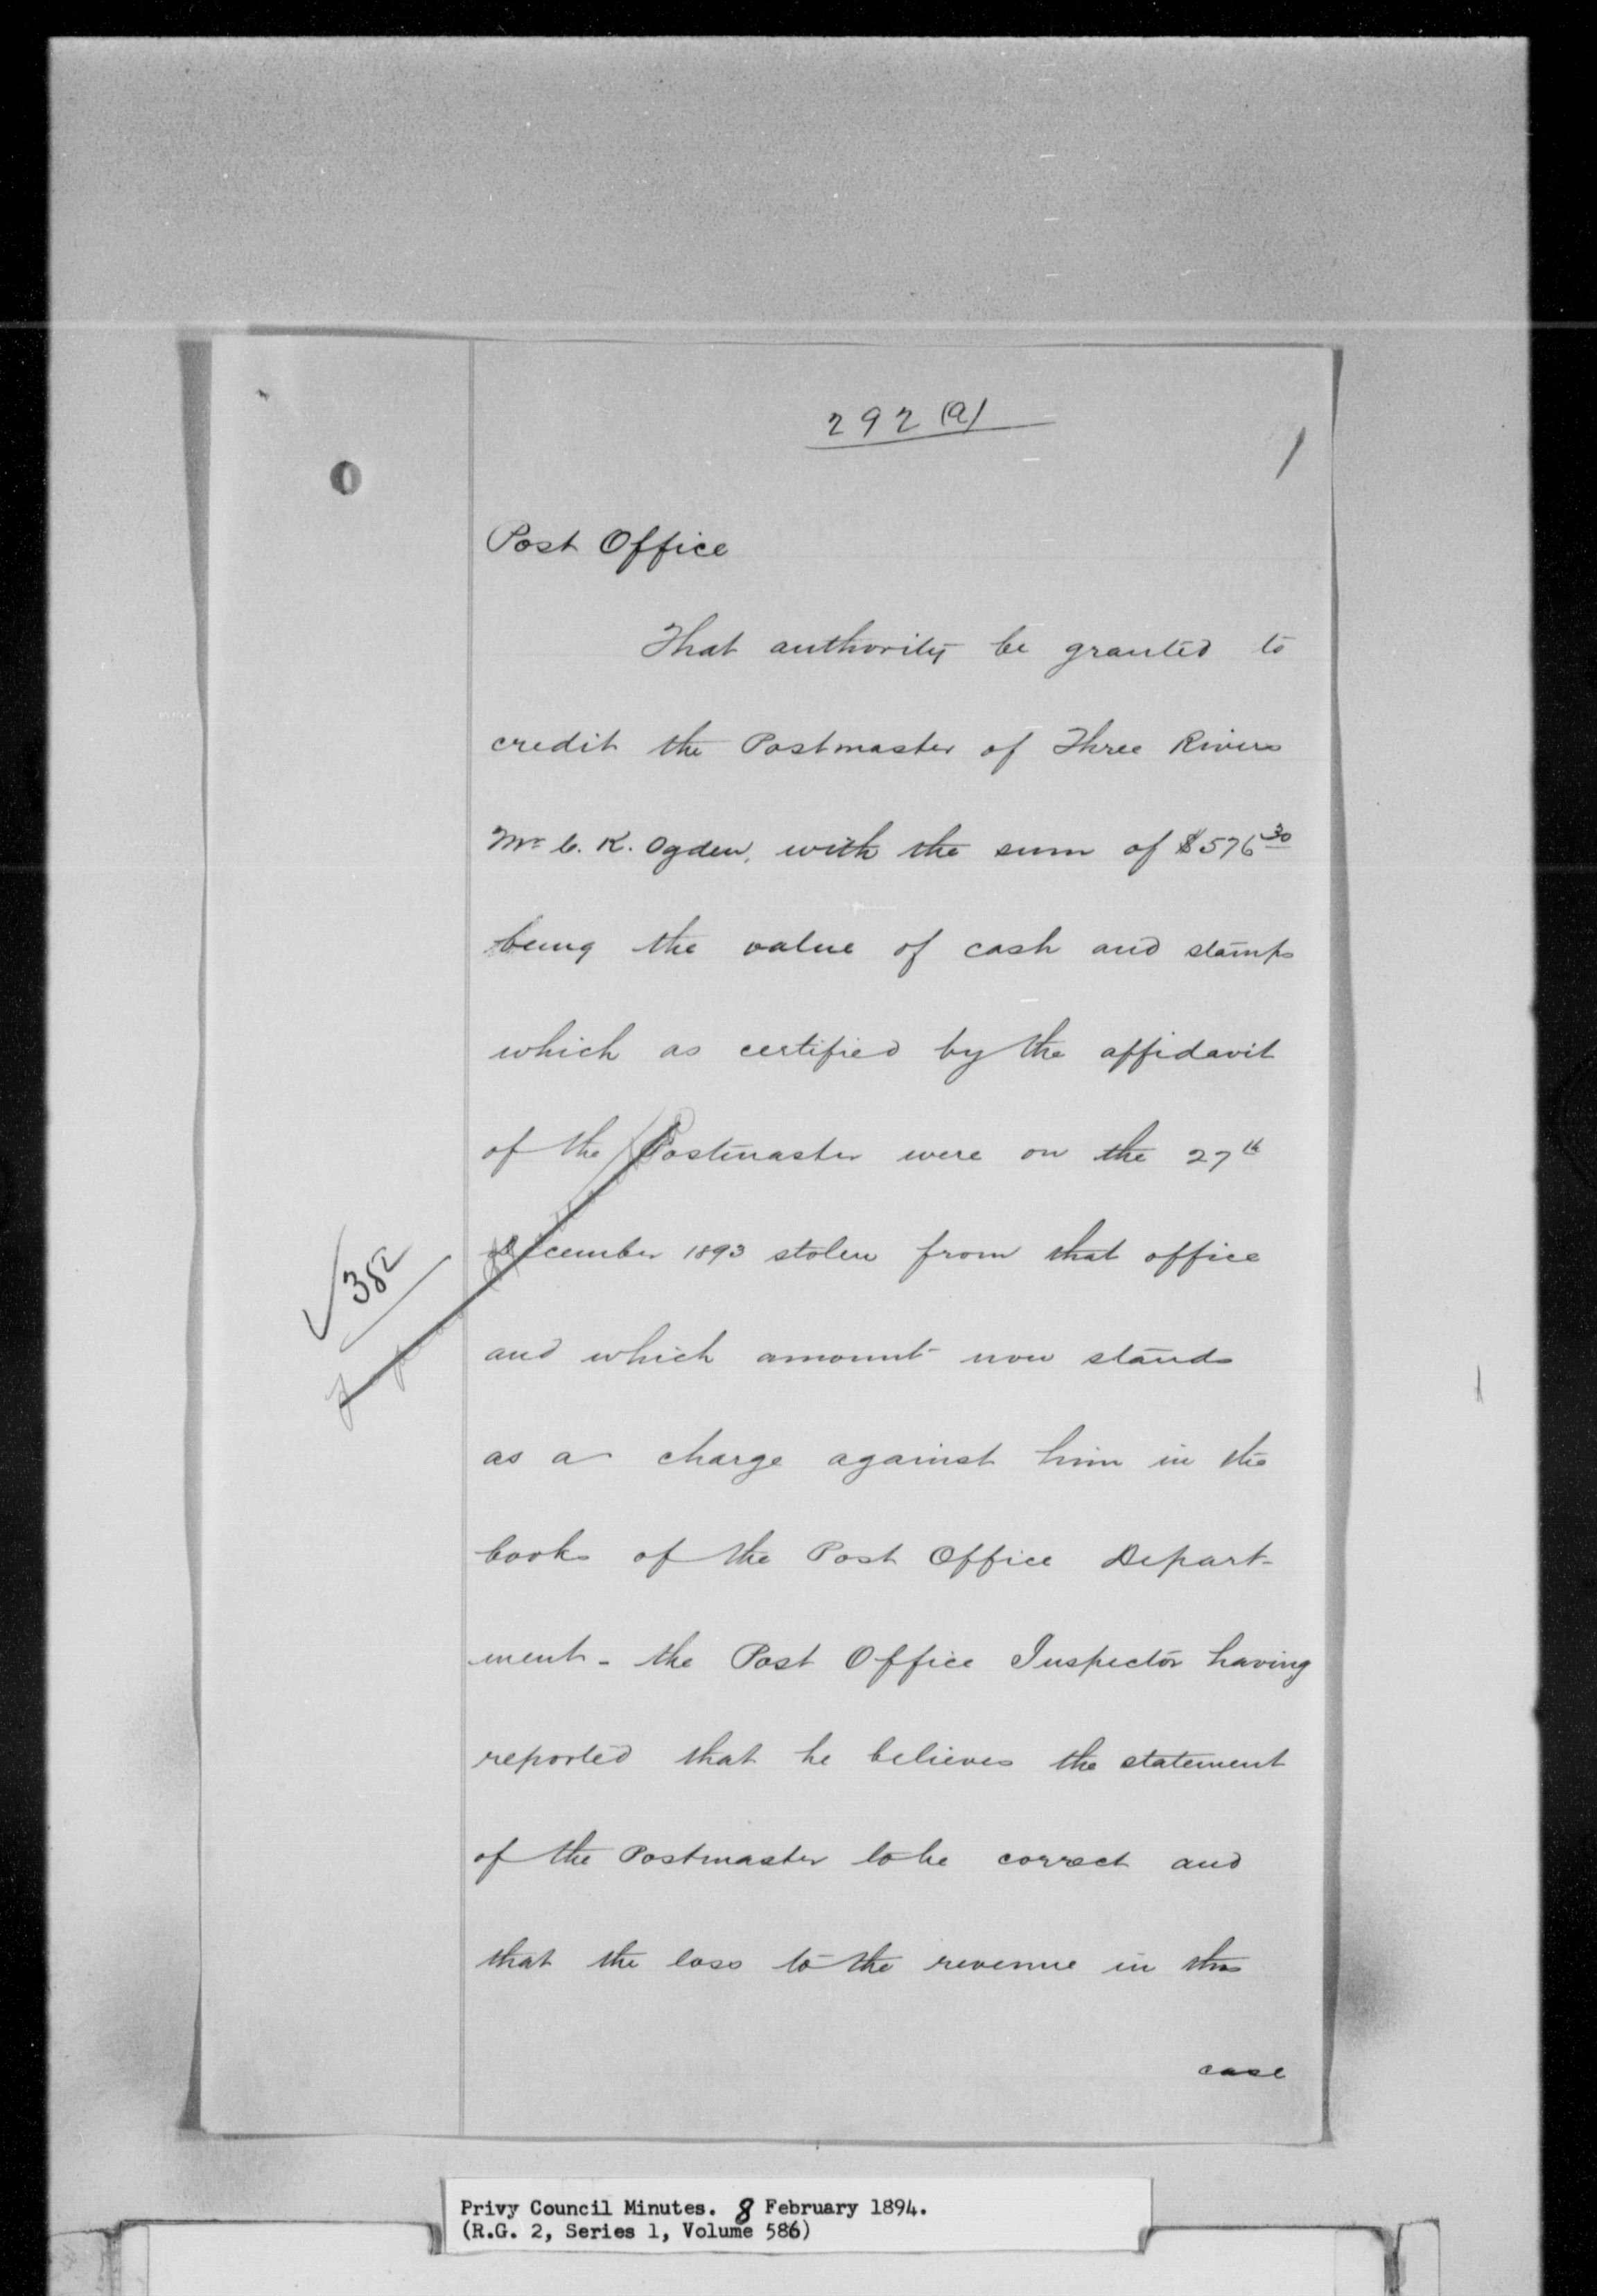 292 (a)
1
Post Office
That authority be granted to
credit the Postmaster of Three Rivers
Mr. C. K. Ogden, with the sum of $576 30
being the value of cash and stamps
which as certified by the affidavit
of the Postmaster were on the 27th
December 1893 stolen from that office
382
and which amount now stands
as a charge against him in the
books of the Post Office Depart-
ment - the Post Office Inspector having
reported that he believes the statement
of the Postmaster to be correct and
that the loss to the revenue in this
case
Privy Council Minutes. 8 February 1894.
(R.G. 2, Series 1, Volume 586)